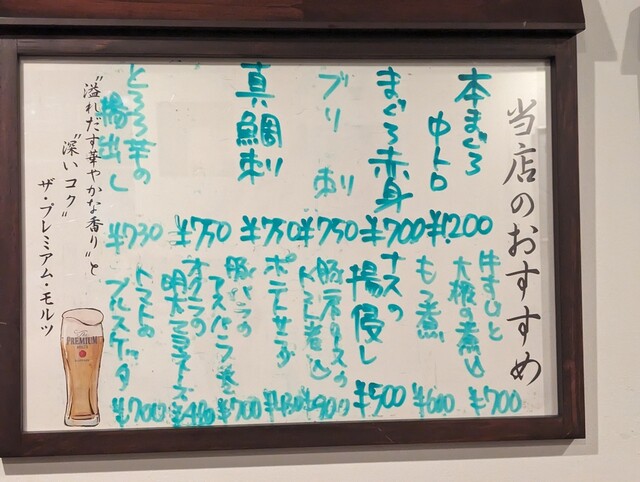 当店のおすすめ
本まぐろ
中トロ
¥1200
まぐろ赤身
¥700
ブリ刺
¥750
真鯛刺
¥750
¥750
とろろ芋の
揚出し
¥730
牛すじと
大根の煮込
¥700
もつ煮
¥600
ナスの
揚浸し
¥500
豚ロースの
トマト煮込
¥900
ポテトサラダ
豚バラの
アスパラ巻
¥700
オクラの
明太マヨネーズ
トマトの
ブルスケッタ
¥700
"溢れだす華やかな香り"と
"深いコク"
ザ・プレミアム・モルツ
The
PREMIUM
MALT'S